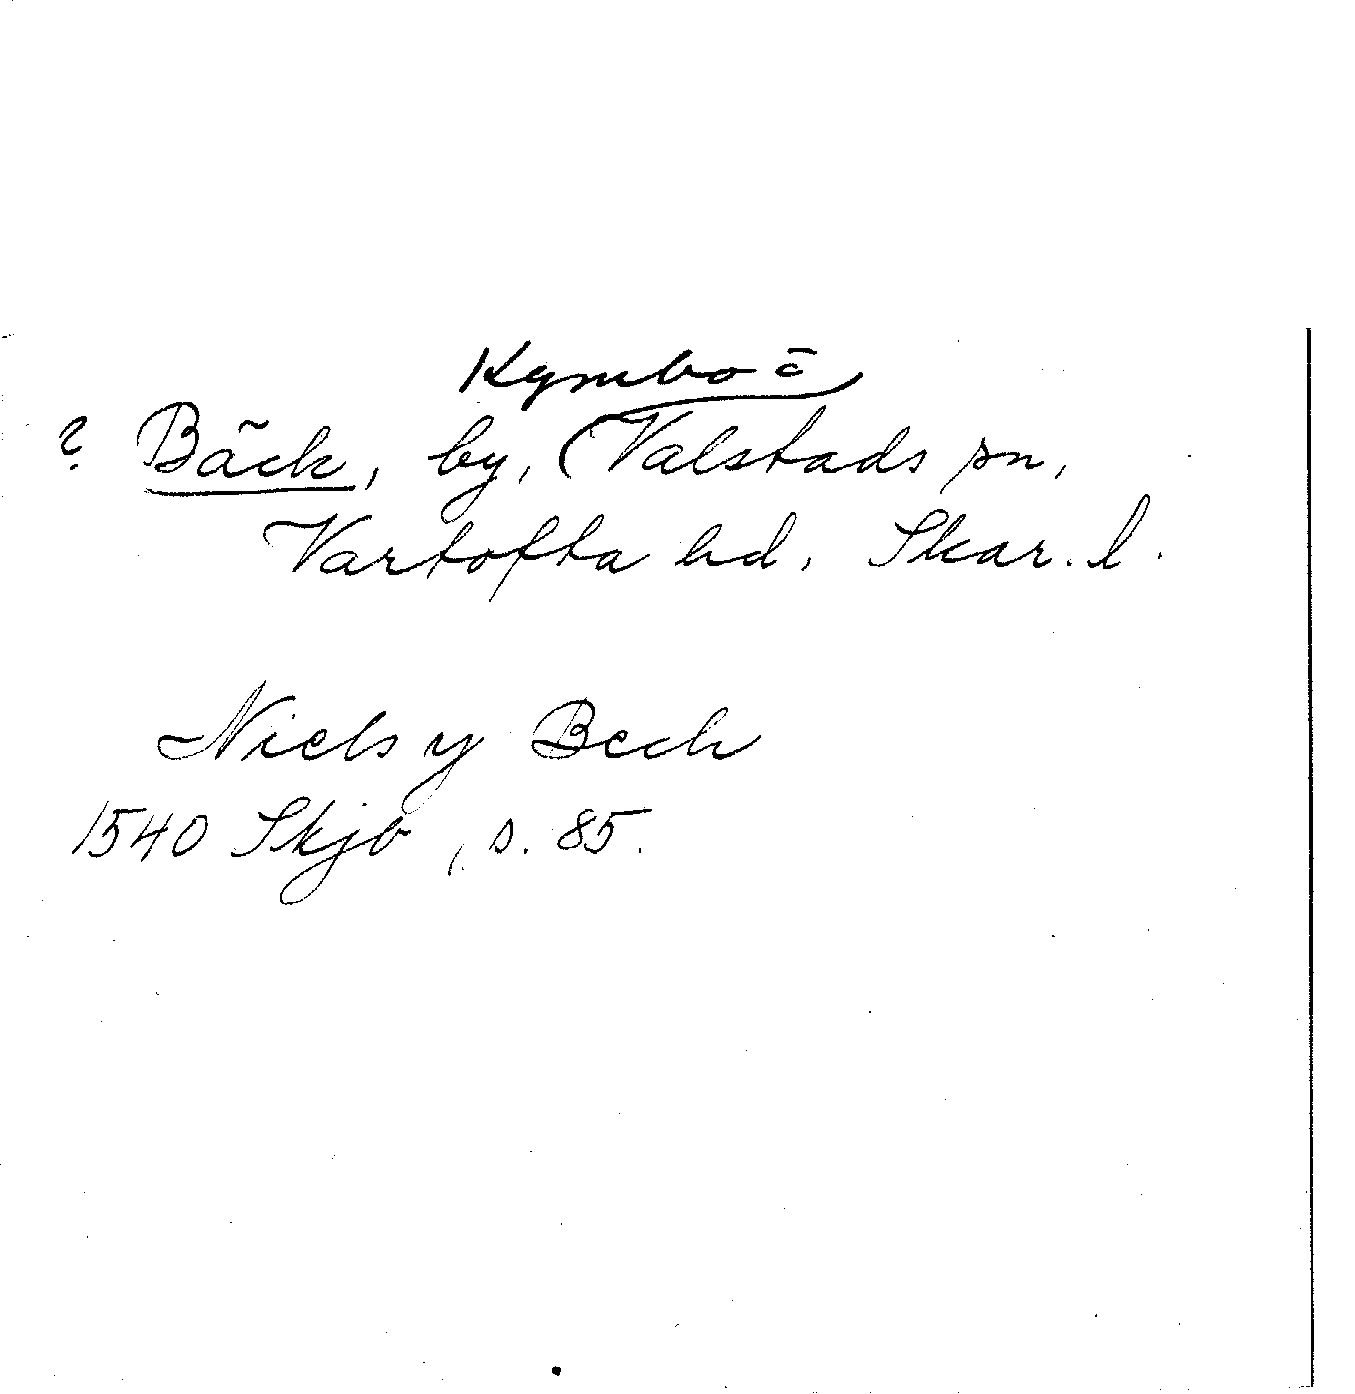 Kymbo =
? Bäck, by, (Valstads sn,
Vartofta hd, Skar. l.
Niels y Bech
1540 Skjb, s. 85.